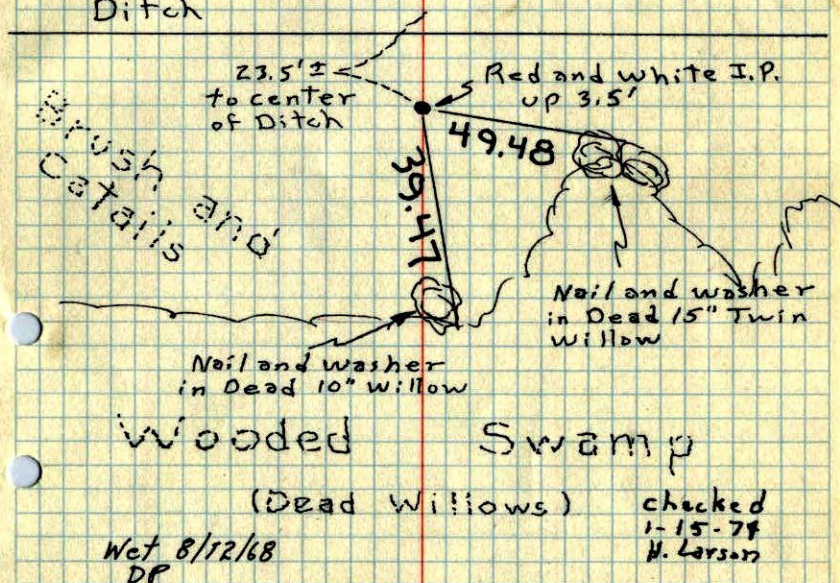 Ditch
23.5'±
to center
of Ditch
Red and white I.P.
up 3.5'
49.48
39.47
Brush and
Cattails
Nail and washer
in Dead 15" Twin
Willow
Nail and washer
in Dead 10" Willow
Wooded Swamp
(Dead Willows)
checked
1-15-74
H. Larson
Wet 8/12/68
DP